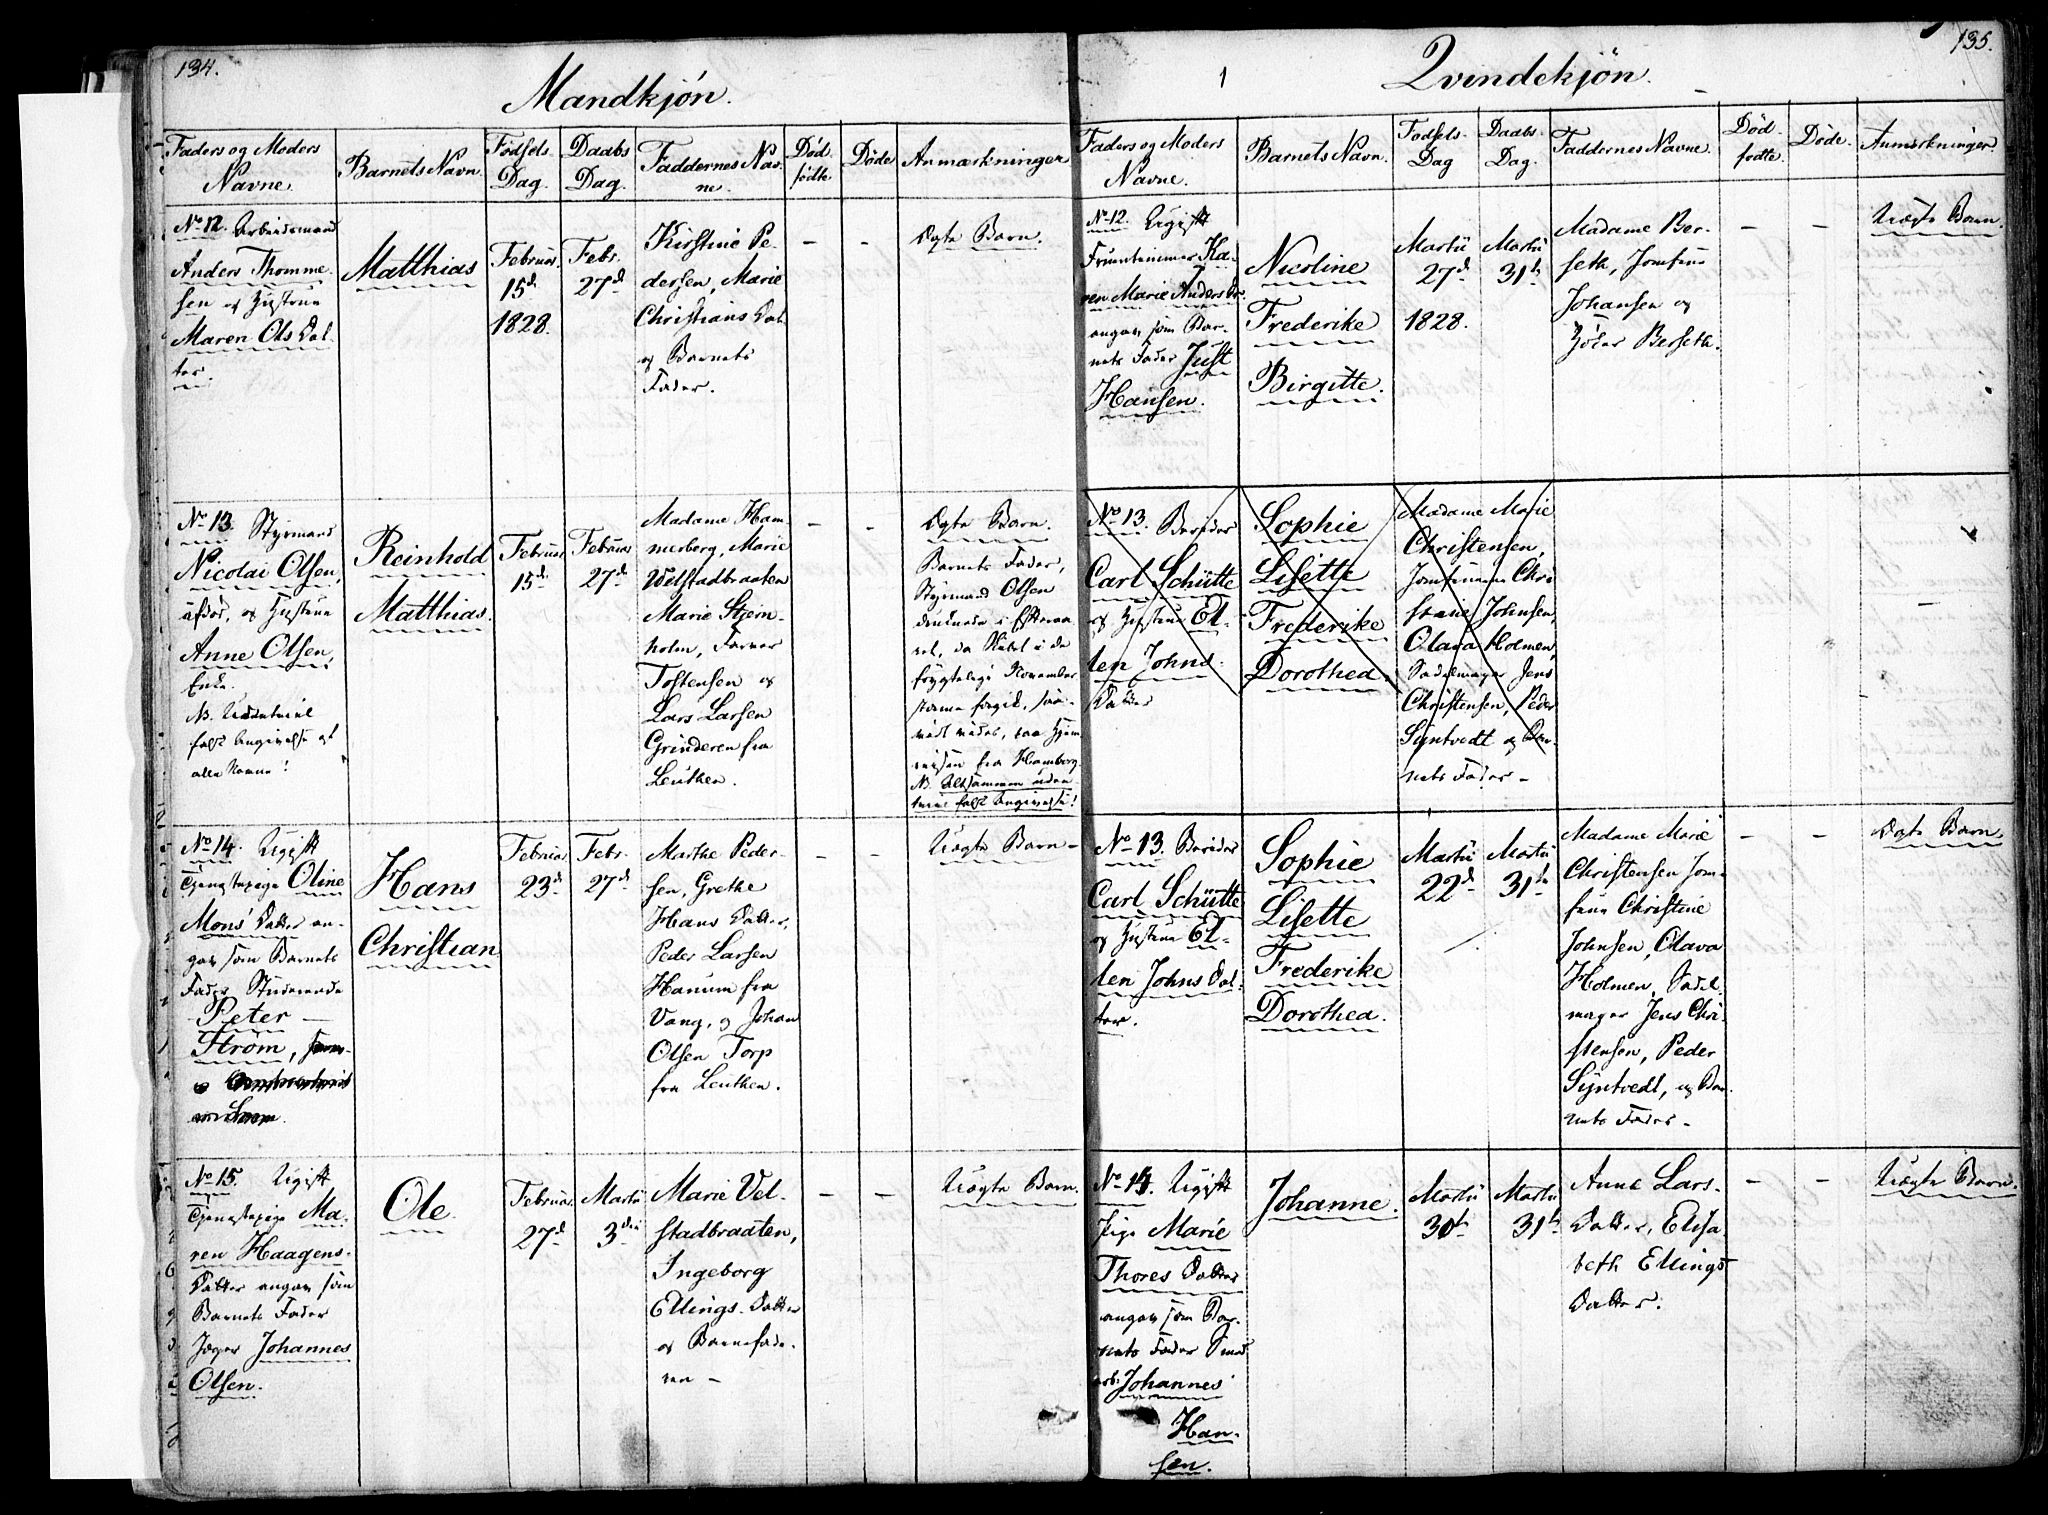 134.
Mandkjön.
Faders og Moders Navne.
Barnets Navn.
Födsels Dag.
Daabs Dag.
Faddernes Navne.
Död födte
Döde
Anmærkninger
No 12. Arbeidsmand
Anders Thomme-
sen og Hustrue
Maren Ols Dat-
ter.
Matthias
Februar.
15de
1828.
Febr.
27de
Kirstine Pe-
dersen, Marie
Christians Dat.
og Barnets
Fader.
–
–
Ægte Barn.
No 13. Styrmand
Nicolai Olsen,
og Hustrue
Anne Olsen,
Enke.
falsk Angivelse af
alle Navne!
Reinhold
Matthias.
Februar
15de
Februar
27de
Madame Ham-
merberg, Marie
Velstadbraaten
Marie Stjern-
holm, Farver
Tostensen og
Lars Larsen
Grinderen fra
Leuthen.
–
–
Ægte Barn.
Barnets Fader,
Styrmand Olsen
druknede i Efteraa-
ret, da Skibet i de
frygtelige November
storme forgik,
fra Hamborg.
NB. Altsammen uden-
falsk Angivelse!
No 14. Ugift
Tjenestepige Oline
Mons' Datter an-
gav som Barnets
Fader Studerende
Peter –
Ström,
Hans
Christian
Februar
23de
Febr.
27de
Marthe Peder-
sen, Grethe
Hans Datter,
Peder Larsen
Hanum fra
Vang, og Johan
Olsen Torp
fra Leuthen.
–
–
Uægte Barn –
No 15. Ugift
Tjenestepige Ma-
ren Haagens-
Datter angav som
Barnets Fader
Jæger Johannes
Olsen.
Ole.
Februar.
27de
Martii
3die
Marie Vel-
stadbraaten,
Ingeborg
Ellings-Datter
og Barnefade-
ren –
–
–
Uægte Barn.
135.
1
Qvindekjön.
Faders og Moders Navne.
Barnets Navn.
Fodsels-Dag
Daabs-Dag.
Faddernes Navne.
Död-fodte
Döde.
Anmærkninger.
No 12. Ugift
Fruentimmer Ka-
ren Marie Anders Dr.
angav som Bar-
nets Fader Just
Hansen.
Nicoline
Frederike
Birgitte.
Martii
27de
1828.
Martii
31te
Madame Ber-
seth, Jomfrue
Johansen og
Berseth.
–
–
Uægte Barn.
No 13. Berider
Carl Schütte
og Hustrue El-
len Johns-
Datter
Sophie
Lisette
Frederike
Dorothea.
Madame Marie
Christensen,
Jomfruerne Chri
stine Johnsen,
Olava Holmen,
Sadelmager Jens
Christensen, Peder
Syntvedt og Bar-
nets Fader –
No 13. Berider
Carl Schütte
og Hustrue El-
len Johns Dat-
ter.
Sophie
Lisette
Frederike
Dorothea.
Martii
22de
Martii
31te
Madame Marie
Christensen Jom-
frue Christine
Johnsen, Olava
Holmen, Sadel
mager Jens Chri-
stensen, Peder
Syntvedt, og Bar-
nets Fader –
–
–
Ægte Barn.
No 14. Ugift
Pige Marie
Thores Datter
angav som Bar-
nets Fader
Johannes
Han-
sen.
Johanne.
Martii
30te
Martii
31te
Anne Lars-
Datter, Elisa
beth Ellings
Datter.
–
–
Uægte Barn.